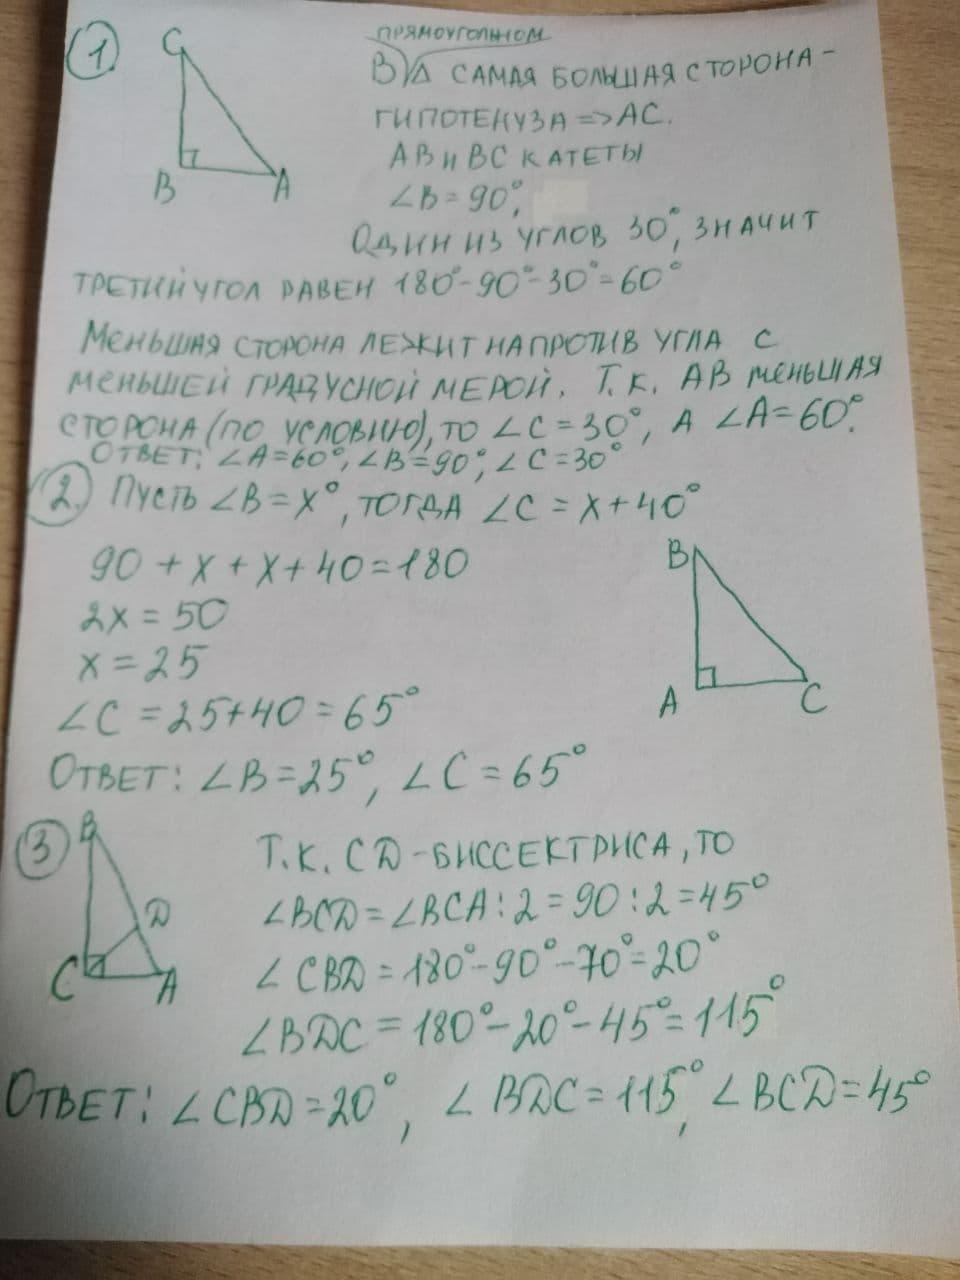 1) C B A
ПРЯМОУГОЛЬНОМ
В Δ САМАЯ БОЛЬШАЯ СТОРОНА -
ГИПОТЕНУЗА => AC.
AB И BC КАТЕТЫ
∠B = 90°,
ОДИН ИЗ УГЛОВ 30°, ЗНАЧИТ
ТРЕТИЙ УГОЛ РАВЕН 180°-90°-30°=60°
МЕНЬШАЯ СТОРОНА ЛЕЖИТ НАПРОТИВ УГЛА С
МЕНЬШЕЙ ГРАДУСНОЙ МЕРОЙ. Т.К. AB МЕНЬШАЯ
СТОРОНА (ПО УСЛОВИЮ), ТО ∠C = 30°, А ∠A=60°.
ОТВЕТ: ∠A=60°, ∠B=90°, ∠C=30°
2) ПУСТЬ ∠B = x°, ТОГДА ∠C = x+40°
90 + x + x + 40 = 180
2x = 50
x = 25
∠C = 25+40 = 65°
B A C
ОТВЕТ: ∠B = 25°, ∠C = 65°
3) B D C A
Т.К. CD - БИССЕКТРИСА, ТО
∠BCD = ∠BCA : 2 = 90 : 2 = 45°
∠CBD = 180°-90°-70°=20°
∠BDC = 180°-20°-45°=115°
ОТВЕТ: ∠CBD = 20°, ∠BDC = 115°, ∠BCD = 45°